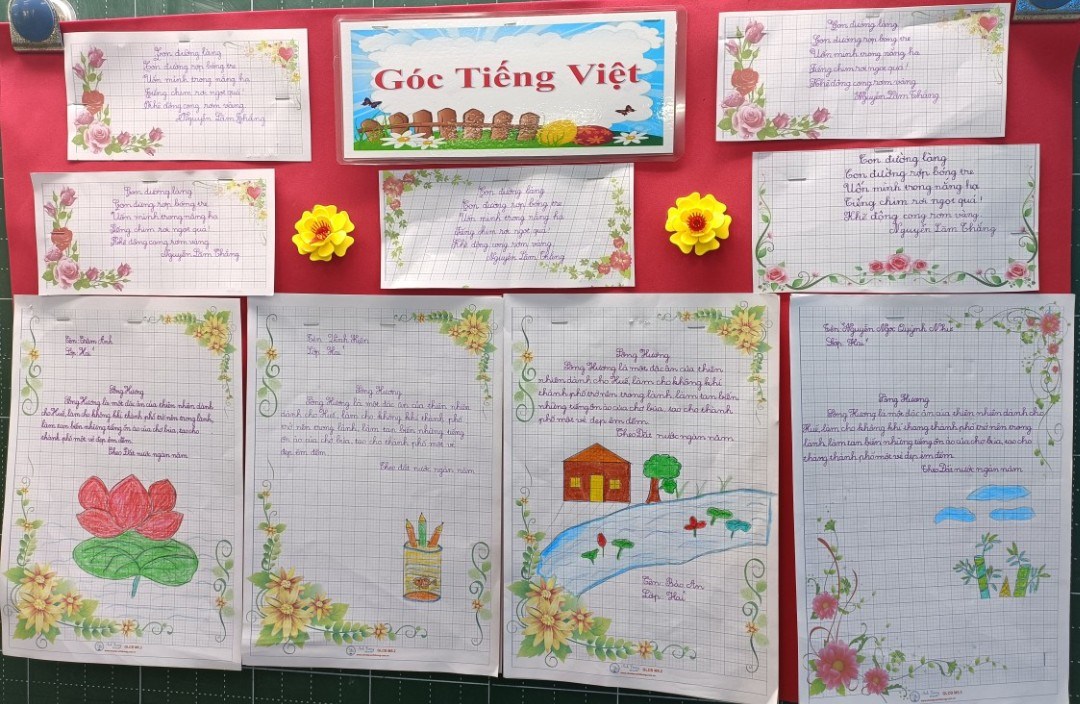 Góc Tiếng Việt
Con đường làng
Con đường rợp bóng tre
Uốn mình trong nắng hạ
Tiếng chim rơi ngọt quá!
Khẽ động cọng rơm vàng.
Nguyễn Lãm Thắng
Con đường làng
Con đường rợp bóng tre
Uốn mình trong nắng hạ
Tiếng chim rơi ngọt quá!
Khẽ động cọng rơm vàng.
Nguyễn Lãm Thắng
Con đường làng
Con đường rợp bóng tre
Uốn mình trong nắng hạ
Tiếng chim rơi ngọt quá!
Khẽ động cọng rơm vàng.
Nguyễn Lãm Thắng
Con đường làng
Con đường rợp bóng tre
Uốn mình trong nắng hạ
Tiếng chim rơi ngọt quá!
Khẽ động cọng rơm vàng.
Nguyễn Lãm Thắng
Con đường làng
Con đường rợp bóng tre
Uốn mình trong nắng hạ
Tiếng chim rơi ngọt quá!
Khẽ động cọng rơm vàng.
Nguyễn Lãm Thắng
Tên: Trâm Anh
Lớp Hai¹
Sông Hương
Sông Hương là một đặc ân của thiên nhiên dành
cho Huế, làm cho không khí thành phố trở nên trong lành,
làm tan biến những tiếng ồn ào của chợ búa, tạo cho
thành phố một vẻ đẹp êm đềm.
Theo Đất nước ngàn năm
Tên:
Lớp Hai¹
Sông Hương
Sông Hương là một đặc ân của thiên nhiên
dành cho Huế, làm cho không khí thành phố
trở nên trong lành, làm tan biến những tiếng
ồn ào của chợ búa, tạo cho thành phố một vẻ
đẹp êm đềm.
Theo đất nước ngàn năm
Sông Hương
Sông Hương là một đặc ân của thiên
nhiên dành cho Huế, làm cho không khí
thành phố trở nên trong lành, làm tan biến
những tiếng ồn ào của chợ búa, tạo cho thành
phố một vẻ đẹp êm đềm.
Theo Đất nước ngàn năm
Tên: Bảo An
Lớp Hai¹
Tên: Nguyễn Ngọc Quỳnh Như
Lớp Hai¹
Sông Hương
Sông Hương là một đặc ân của thiên nhiên dành cho
Huế, làm cho không khí thang thành phố trở nên trong
lành, làm tan biến những tiếng ồn ào của chợ búa, tạo cho
thàng thành phố một vẻ đẹp êm đềm.
Theo Đất nước ngàn năm